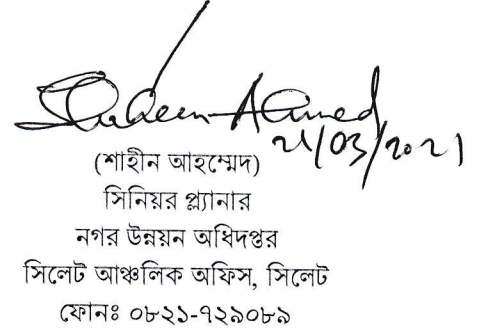 Shaheen Ahmed
21/03/2021
(শাহীন আহম্মেদ)
সিনিয়র প্ল্যানার
নগর উন্নয়ন অধিদপ্তর
সিলেট আঞ্চলিক অফিস, সিলেট
ফোনঃ ০৮২১-৭২৯০৮৯